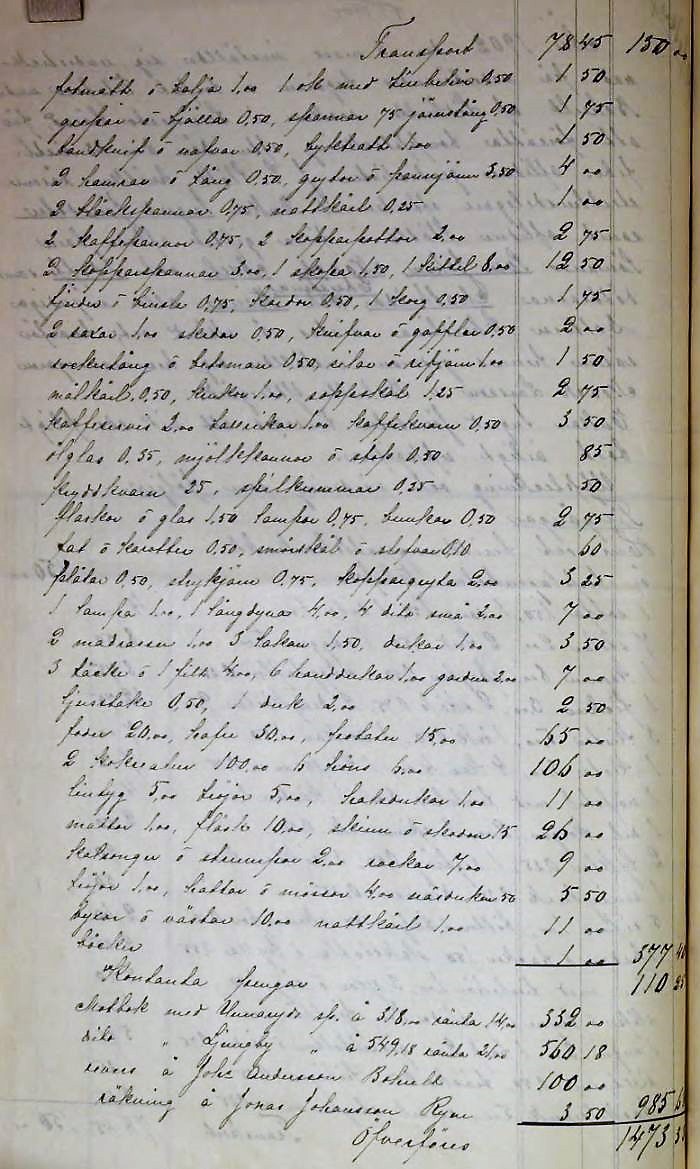 Transport 78 45 150 00
fotmått ö balja 1,00 1 ok med 0,50 1 50
ö 0,50, spannar 75 järnstång 0,50 1 75
bandknif ö nafvar 0,50, byktratt 1,00 1 50
2 hamrar ö tång 0,50, grytor ö pannjärn 3,50 4 00
2 bläckspannar 0,75, nattkärl 0,25 1 00
2 kaffepannor 0,75, 2 kopparpottor 2,00 2 75
2 kopparskannar 3,00, 1 skopa 1,50, 1 kittel 8,00 12 50
ö 0,75, kardor 0,50, 1 korg 0,50 1 75
2 saxar 1,00 skedar 0,50, knifvar ö gafflar 0,50 2 00
sockertång ö betsman 0,50, silar ö rifjärn 1,00 1 50
målkärl 0,50, krukor 1,00, soppskål 1,25 2 75
kaffeservis 2,00 tallrikar 1,00 kaffekvarn 0,50 3 50
ölglas 0,35, mjölkkannor ö stop 0,50 85
kryddkvarn 25, spilkummar 0,25 50
flaskor ö glas 1,50 lampor 0,75, burkar 0,50 2 75
fat ö karotter 0,50, smörskål ö slefvar 0,10 60
plåtar 0,50, strykjärn 0,75, koppargryta 2,00 3 25
1 lampa 1,00, 1 långdyna 4,00, 4 dito små 2,00 7 00
2 madrasser 1,00 3 lakan 1,50, dukar 1,00 3 50
3 täcke ö 1 filt 4,00, 6 handdukar 1,00 gardiner 2,00 7 00
ljusstake 0,50, 1 duk 2,00 2 50
foder 20,00, hafre 30,00, potater 15,00 65 00
2 kokreatur 100,00 6 höns 6,00 106 00
lintyg 5,00 tröjor 5,00, halsdukar 1,00 11 00
mattor 1,00, fläsk 10,00, skinn ö skodon 15 26 00
kalsonger ö strumpor 2,00 rockar 7,00 9 00
tröjor 1,00, hattar ö mössor 4,00 näsdukar 50 5 50
byxor ö västar 10,00 nattkärl 1,00 11 00
böcker 1 00 377 40
Kontanta pengar 110 25
Motbok med Unnaryds sp. å 318,00 ränta 14,00 332 00
dito " Ljungby " å 549,18 ränta 21,00 560 18
revers å Joh: Andersson Bohult 100 00
räkning å Jonas Johansson Ryen 3 50 985
Öfverföres 1473